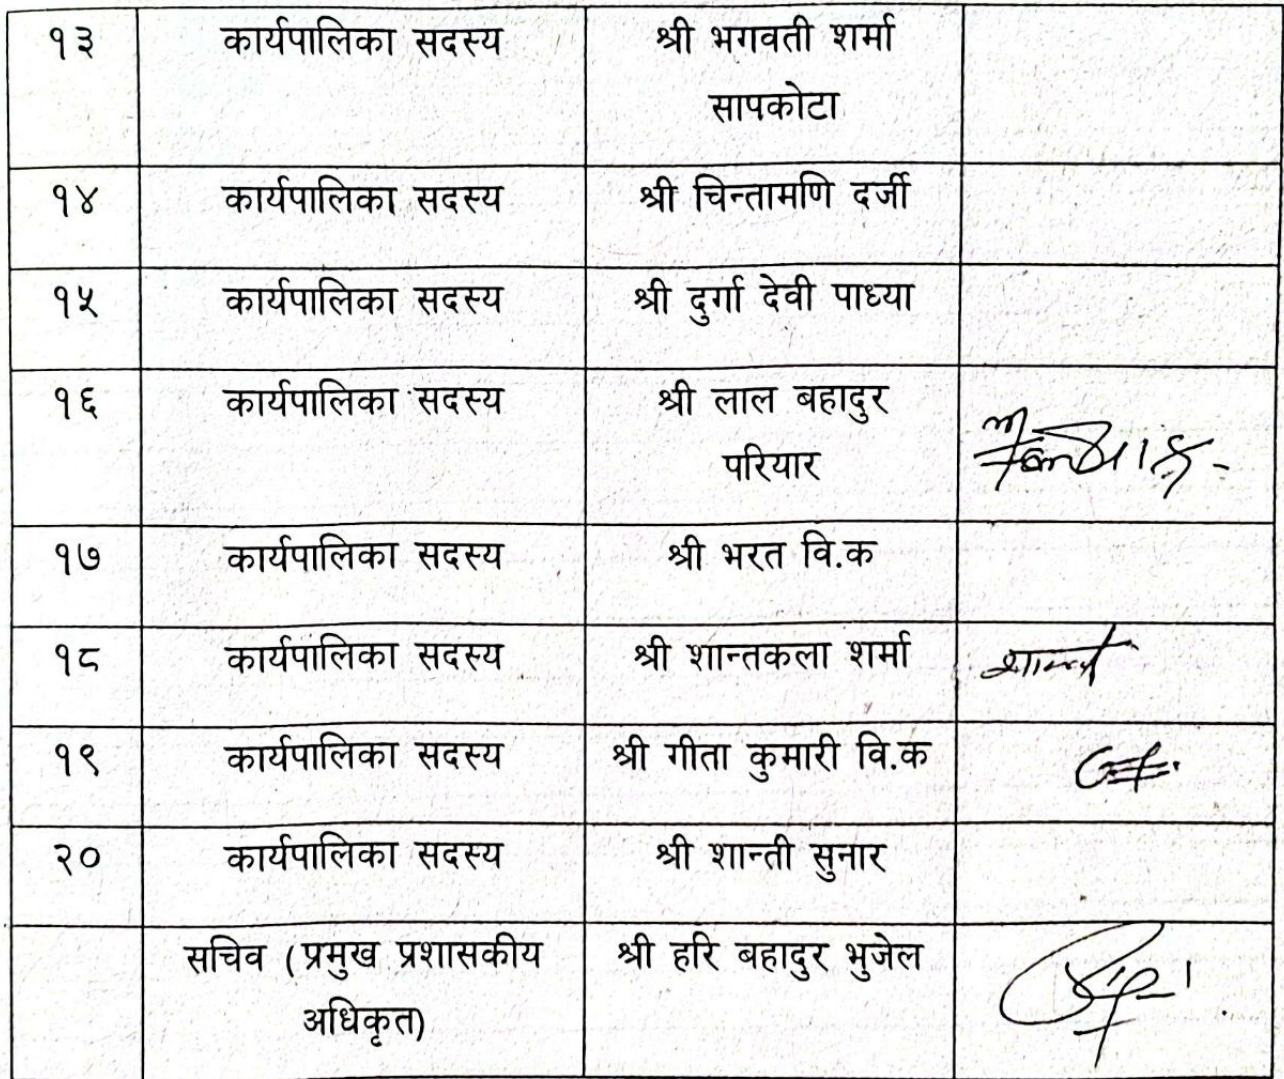 १३ कार्यपालिका सदस्य श्री भगवती शर्मा
सापकोटा
१४ कार्यपालिका सदस्य श्री चिन्तामणि दर्जी
१५ कार्यपालिका सदस्य श्री दुर्गा देवी पाध्या
१६ कार्यपालिका सदस्य श्री लाल बहादुर
परियार
१७ कार्यपालिका सदस्य श्री भरत वि.क
१८ कार्यपालिका सदस्य श्री शान्तकला शर्मा
१९ कार्यपालिका सदस्य श्री गीता कुमारी वि.क
२० कार्यपालिका सदस्य श्री शान्ती सुनार
सचिव (प्रमुख प्रशासकीय श्री हरि बहादुर भुजेल
अधिकृत)